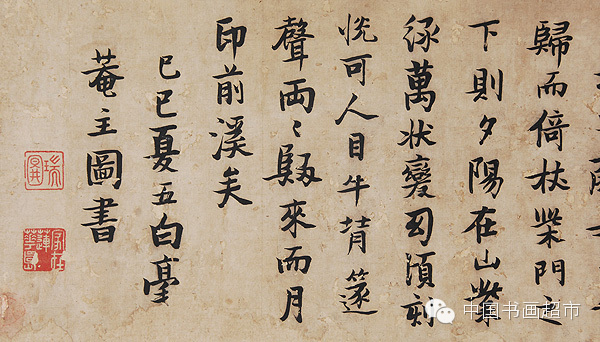 歸而倚杖柴門之
下則夕陽在山紫
緑萬状變幻頃刻
恍可人目牛背篴
聲両〻歸來而月
印前溪矣
己巳夏五白毫
菴主圖書
瑞圖
中国书画超市